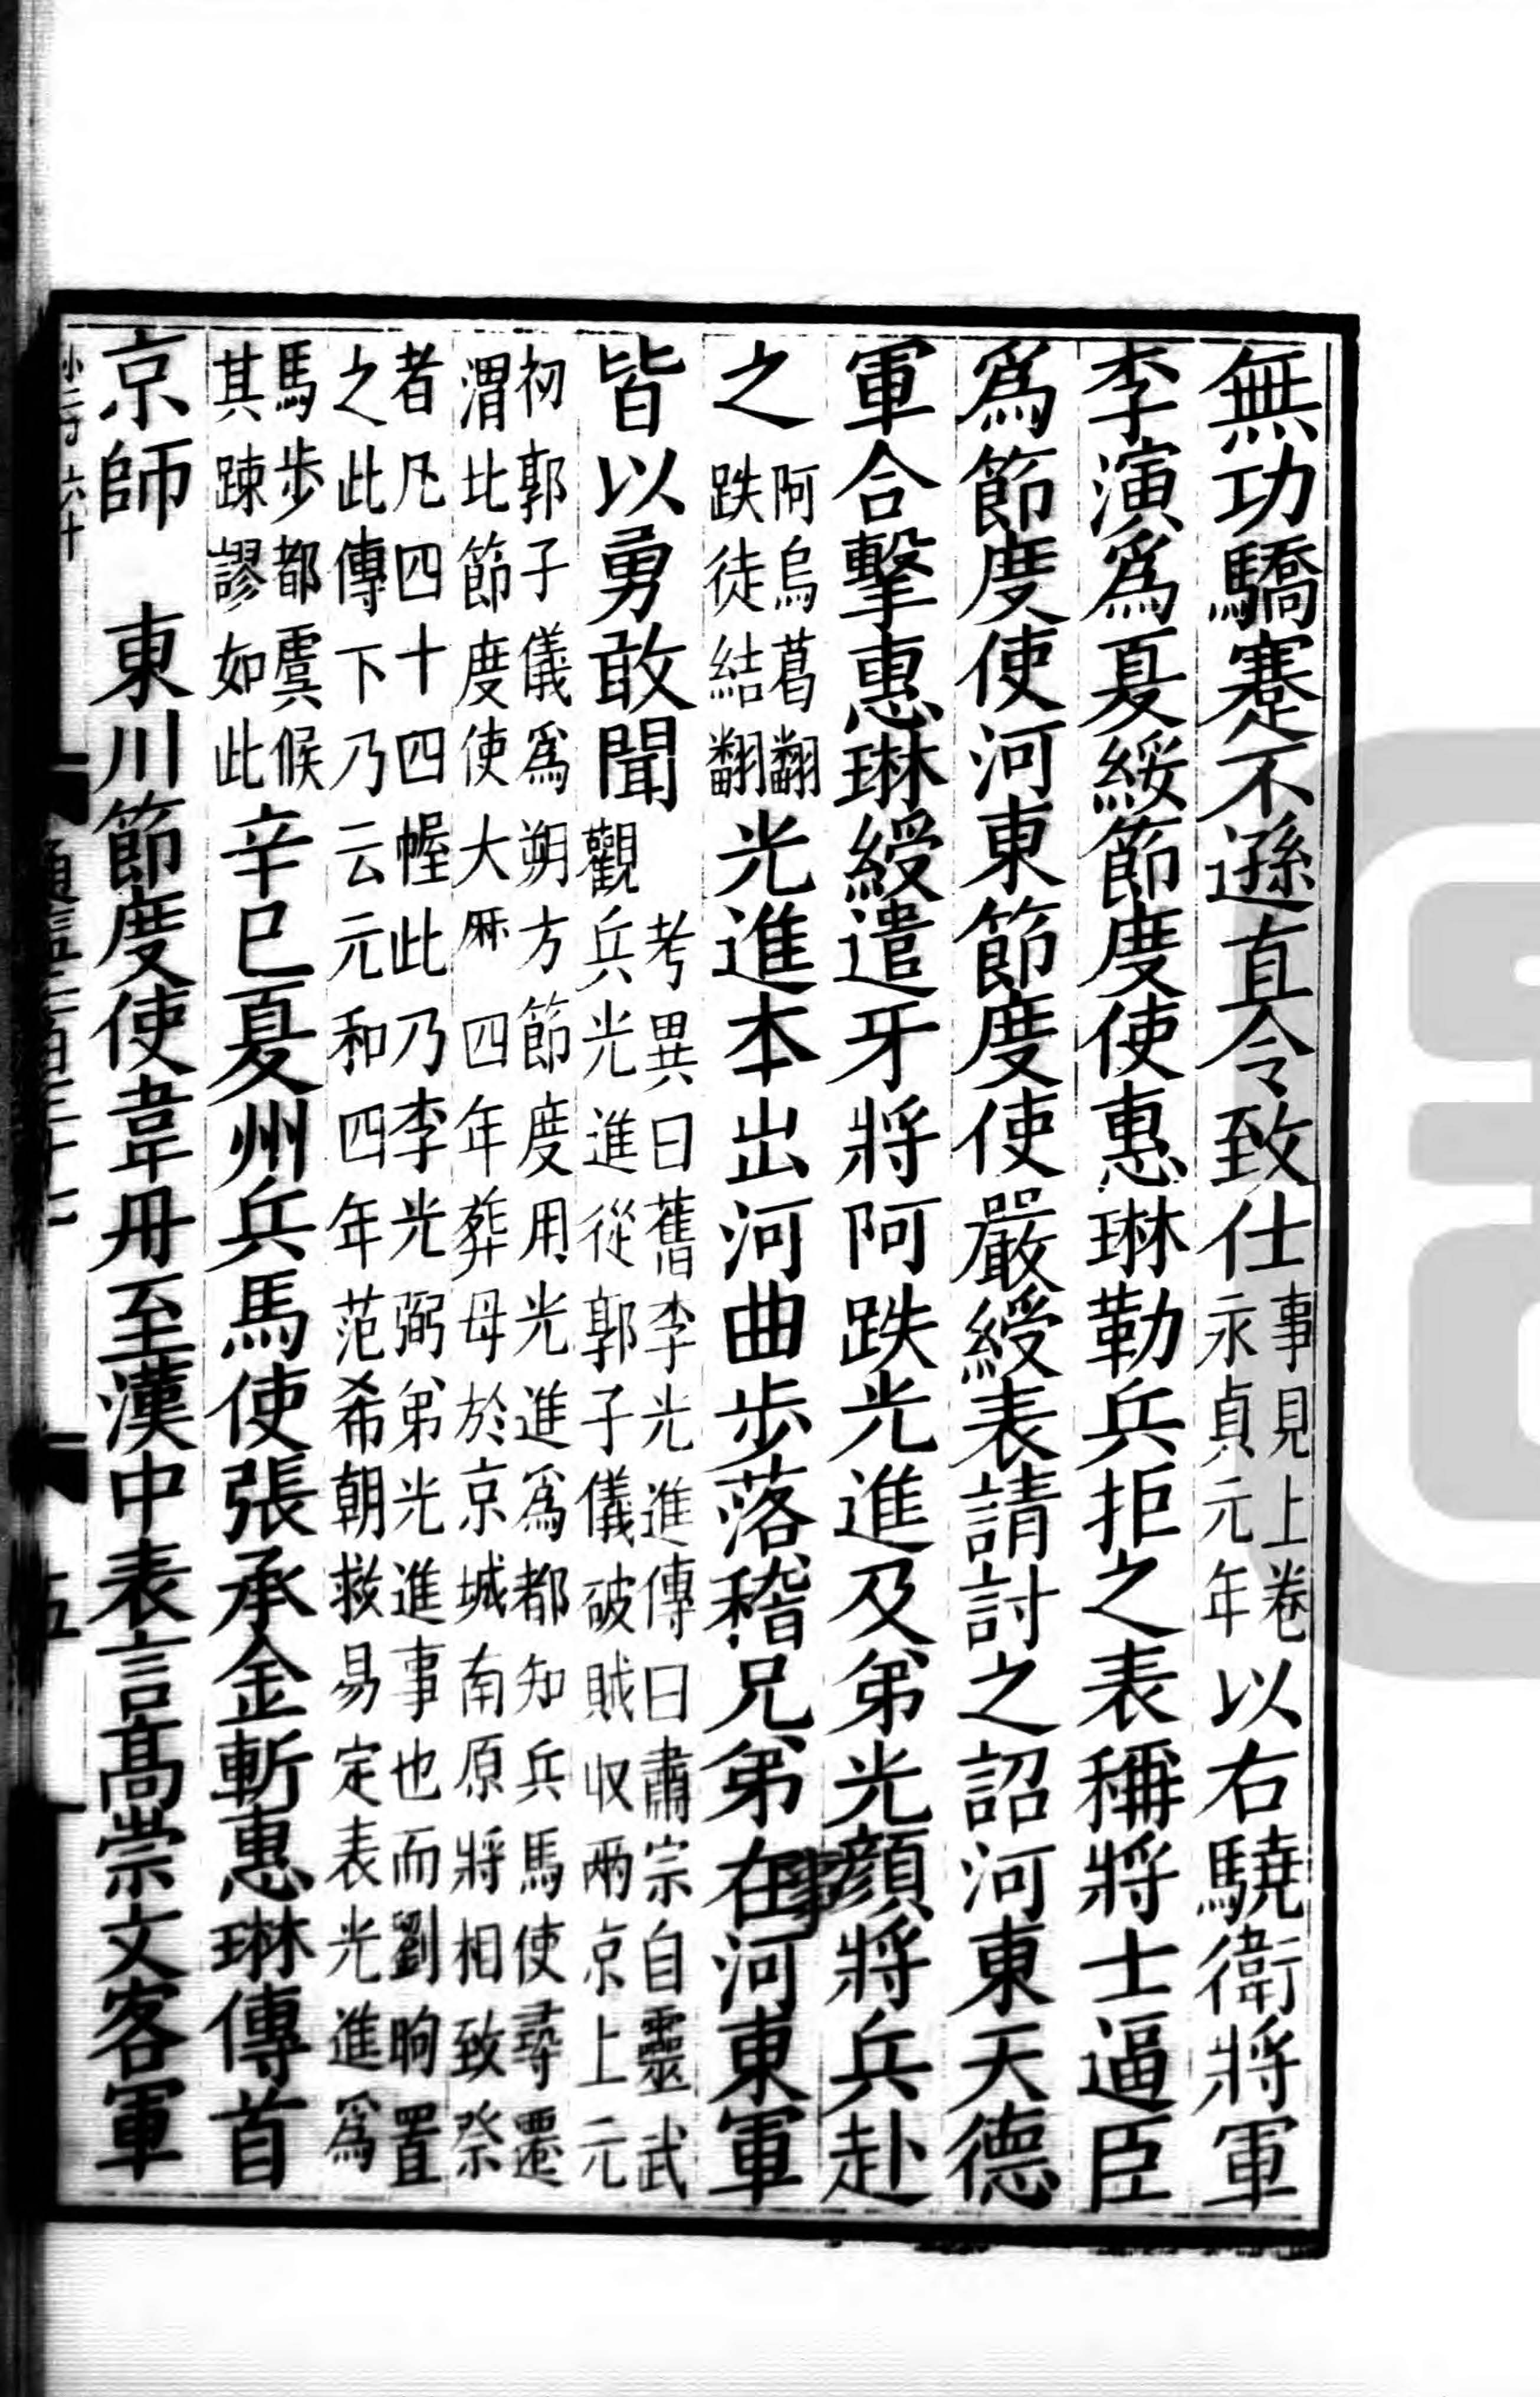 無功驕蹇不遜直令致仕事見上卷永貞元年以右驍衛將軍
李演爲夏綏節度使惠琳勒兵拒之表稱將士逼臣
爲節度使河東節度使嚴綬表請討之詔河東天德
軍合擊惠琳綬遣牙將阿跌光進及弟光顔將兵赴
之阿烏葛翻跌徒結翻光進本出河曲步落稽兄弟在河東軍
皆以勇敢聞考異曰舊李光進傳曰肅宗自靈武觀兵光進從郭子儀破賊收兩京上元
初郭子儀爲朔方節度用光進爲都知兵馬使尋遷渭比節度使大厤四年葬母於京城南原將相致祭
者凡四十四幄此乃李光弼弟光進事也而劉昫置之此傳下乃云元和四年范希朝救易定表光進爲
馬步都虞候其踈謬如此辛巳夏州兵馬使張承金斬惠琳傳首
京師　東川節度使韋丹至漢中表言高崇文客軍